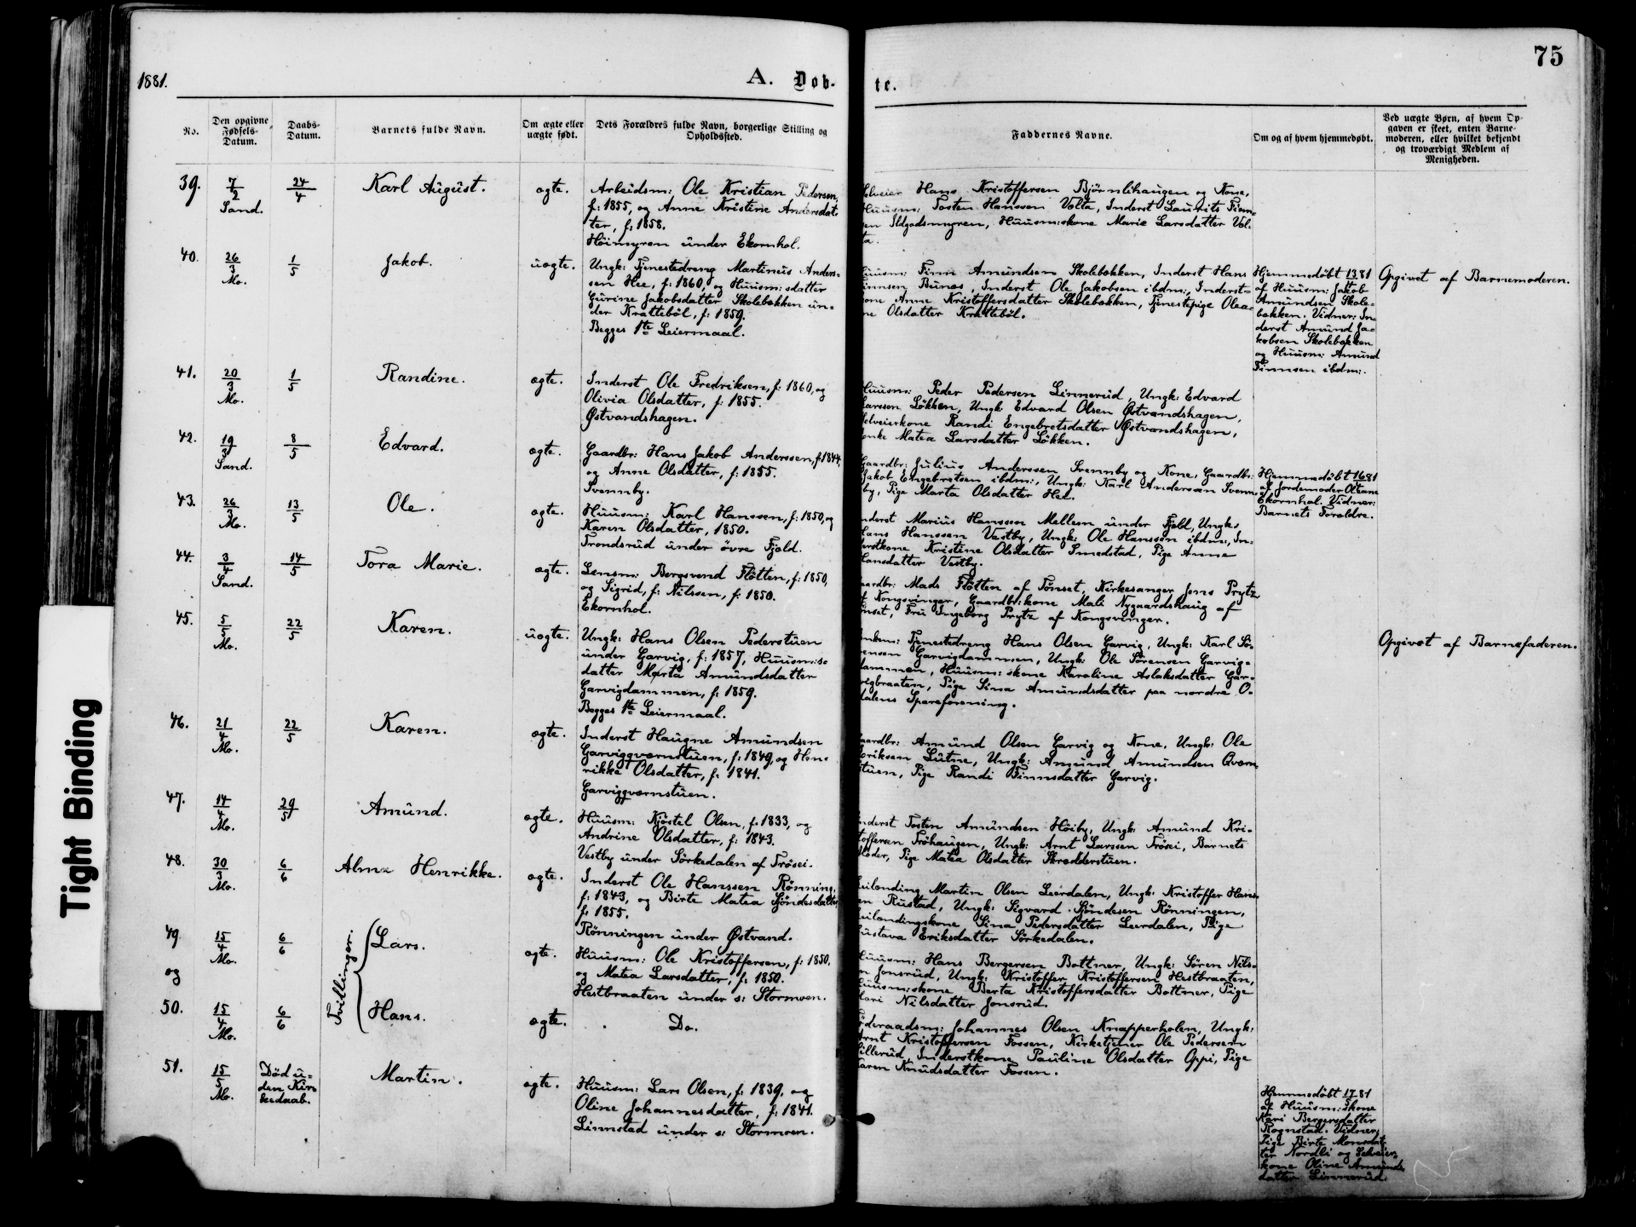 1881.
A. Døb-
te.
75
No.
Den opgivne
Fødsels-
Datum.
Daabs-
Datum.
Barnets fulde Navn.
Om ægte eller
uægte født.
Dets Forældres fulde Navn, borgerlige Stilling og
Opholdssted.
Faddernes Navne.
Om og af hvem hjemmedøbt.
Ved uægte Børn, af hvem Op-
gaven er skeet, enten Barne-
moderen, eller hvilket bekjendt
og troværdigt Medlem af
Menigheden.
39.
7/2
Sand.
24/4
Karl August.
ægte.
Arbeidsm: Ole Kristian Pedersen,
f: 1855, og Anne Kristine Andersdat-
ter, f: 1858.
Höimyren under Ekornhol.
Hans Kristoffersen Björnlihaugen og Kone,
Huusm: Tosten Hanssen Volta, Inderst Laurits Finn-
sen Udgadsmyren, Huusm:skone Marie Larsdatter Vol-
ta.
40.
26/3
Mo.
1/5
Jakob.
uægte.
Ungk: Tjenestedreng Martinius Anders-
sen Hee, f: 1860, og Huusm:sdatter
Gurine Jakobsdatter Skolebakken un-
der Kratteböl, f: 1859.
Begges 1ste Leiermaal.
Huusm: Finn Amundsen Skolebakken, Inderst Hans
Finnsen Bunes, Inderst Ole Jakobsen ibdm:, Inderst-
kone Anne Kristoffersdatter Skolebakken, Tjenestepige Olea-
ne Olsdatter Kratteböl.
Hjemmedöbt
af Huusm: Jakob
Amundsen Skole-
bakken. Vidner: In-
derst Amund Ja-
kobsen Skolebakken
og Huusm: Amund
Finnsen ibdm:.
Opgivet af Barnemoderen.
41.
20/3
Mo.
1/5
Randine.
ægte.
Inderst Ole Fredriksen, f: 1860, og
Olivia Olsdatter, f: 1855.
Østvandshagen.
Huusm: Peder Pedersen Linnerud, Ungk: Edvard
Larssen Løkken, Ungk: Edvard Olsen Østvandshagen,
Selveierkone Randi Engebretsdatter Østvandshagen,
Enke Matea Larsdatter Løkken.
42.
19/3
Sand.
8/5
Edvard.
ægte.
Gaardbr: Hans Jakob Anderssen, f: 1844,
og Anne Olsdatter, f: 1855.
Svennby.
Gaardbr: Julius Anderssen Svennby og Kone, Gaardbr:
Jakob Engebretsen ibdm:, Ungk: Karl Anderssen Svenn-
by, Pige Marta Olsdatter Hee.
Hjemmedöbt
af Jordemoder Oleane
Ekornhol. Vidner:
Barnets Forældre.
43.
26/3
Mo.
13/5
Ole.
ægte.
Huusm: Karl Hanssen, f: 1850, og
Karen Olsdatter, 1850.
Trondsrud under övre Fjeld.
Inderst Marius Hanssen Mellem under Fjeld, Ungk:
Hans Hanssen Vestby, Ungk: Ole Hanssen ibdm:, In-
derstkone Kristine Olsdatter Smedstad, Pige Anne
Hansdatter Vestby.
44.
3/4
Sand.
14/5
Tora Marie.
ægte.
Lensm: Bergsvend Flötten, f: 1850,
og Sigrid, f: Nilssen, f: 1850.
Ekornhol.
Gaardbr: Mads Flötten af Tönset, Kirkesanger Jens Prytz
af Kongsvinger, Gaardbr:kone Mali Nygaardshaug af
Tönset, Fru Ingeborg Prytz af Kongsvinger.
45.
5/5
Mo.
22/5
Karen.
uægte.
Ungk: Hans Olsen Pederstuen
under Garvig, f: 1857, Huusm:s-
datter Marta Amundsdatter
Garvigdammen, f: 1859.
Begges 1ste Leiermaal.
Tjenestedreng Hans Olsen Garvig, Ungk: Karl Sö-
rensen Garvigdammen, Ungk: Ole Sörensen Garvig-
dammen, Huusm:skone Karoline Aslaksdatter Gar-
vigbraaten, Pige Sina Amundsdatter paa nordre O-
dalens Spareforening.
Opgivet af Barnefaderen.
46.
21/4
Mo.
22/5
Karen.
ægte.
Inderst Haugne Amundsen
Garvigqværnstuen, f: 1849, og Hen-
rikke Olsdatter, f: 1841.
Garvigqværnstuen.
Gaardbr: Amund Olsen Garvig og Kone, Ungk: Ole
Eriksen Lutne, Ungk: Amund Amundsen Qværn-
stuen, Pige Randi Finnsdatter Garvig.
47.
14/4
Mo.
29/5
Amund.
ægte.
Huusm: Kjöstel Olsen, f: 1833, og
Andrine Olsdatter, f: 1843.
Vestby under Sörkedalen af Tröset.
Inderst Tosten Amundsen Höiby, Ungk: Amund Kri-
stoffersen Tröhaugen, Ungk: Arnt Larssen Tröset, Barnets
Moder, Pige Matea Olsdatter Skrædderstuen.
48.
30/3
Mo.
6/6
Alma Henrikke.
ægte.
Inderst Ole Hanssen Rönning,
f: 1843, og Birte Matea Sjöndesdatter,
f: 1855.
Rönningen under Østvand.
Martin Olsen Leerdalen, Ungk: Kristoffer Hans-
sen Rustad, Ungk: Sigvard Sjöndesen Rönningen,
Sina Pedersdatter Leerdalen, Pige
Gustava Eriksdatter Sörkedalen.
Tvillinger.
49
og
15/4
Mo.
6/6
Lars.
ægte.
Huusm: Ole Kristoffersen, f: 1850,
og Matea Larsdatter, f: 1850.
Hestbraaten under s: Stormoen.
Huusm: Hans Bergersen Bottner, Ungk: Sören Nils-
sen Jonsrud, Ungk: Kristoffer Kristoffersen Hestbraaten,
Huusm:skone Berta Kristoffersdatter Bottner, Pige
Kari Nilsdatter Jonsrud.
50.
15/4
Mo.
6/6
Hans.
ægte.
Do.
Föderaadsm: Johannes Olsen Knapperholen, Ungk:
Arnt Kristoffersen Fossen, Kirketjener Ole Pedersen
Inderstkone Pauline Olsdatter Oppi, Pige
Karen Knudsdatter Fossen.
51.
15/5
Mo.
Död u-
den Kir-
kedaab.
Martin.
ægte.
Huusm: Lars Olsen, f: 1839, og
Oline Johannesdatter, f: 1841.
Linnstad under s: Stormoen.
Hjemmedöbt
af Huusm:skone
Kari Bergersdatter
Rognstad. Vidner:
Pige Birte Monsdat-
ter Nordli og Selveier-
kone Oline Amunds-
datter Linnerud.
Tight Binding